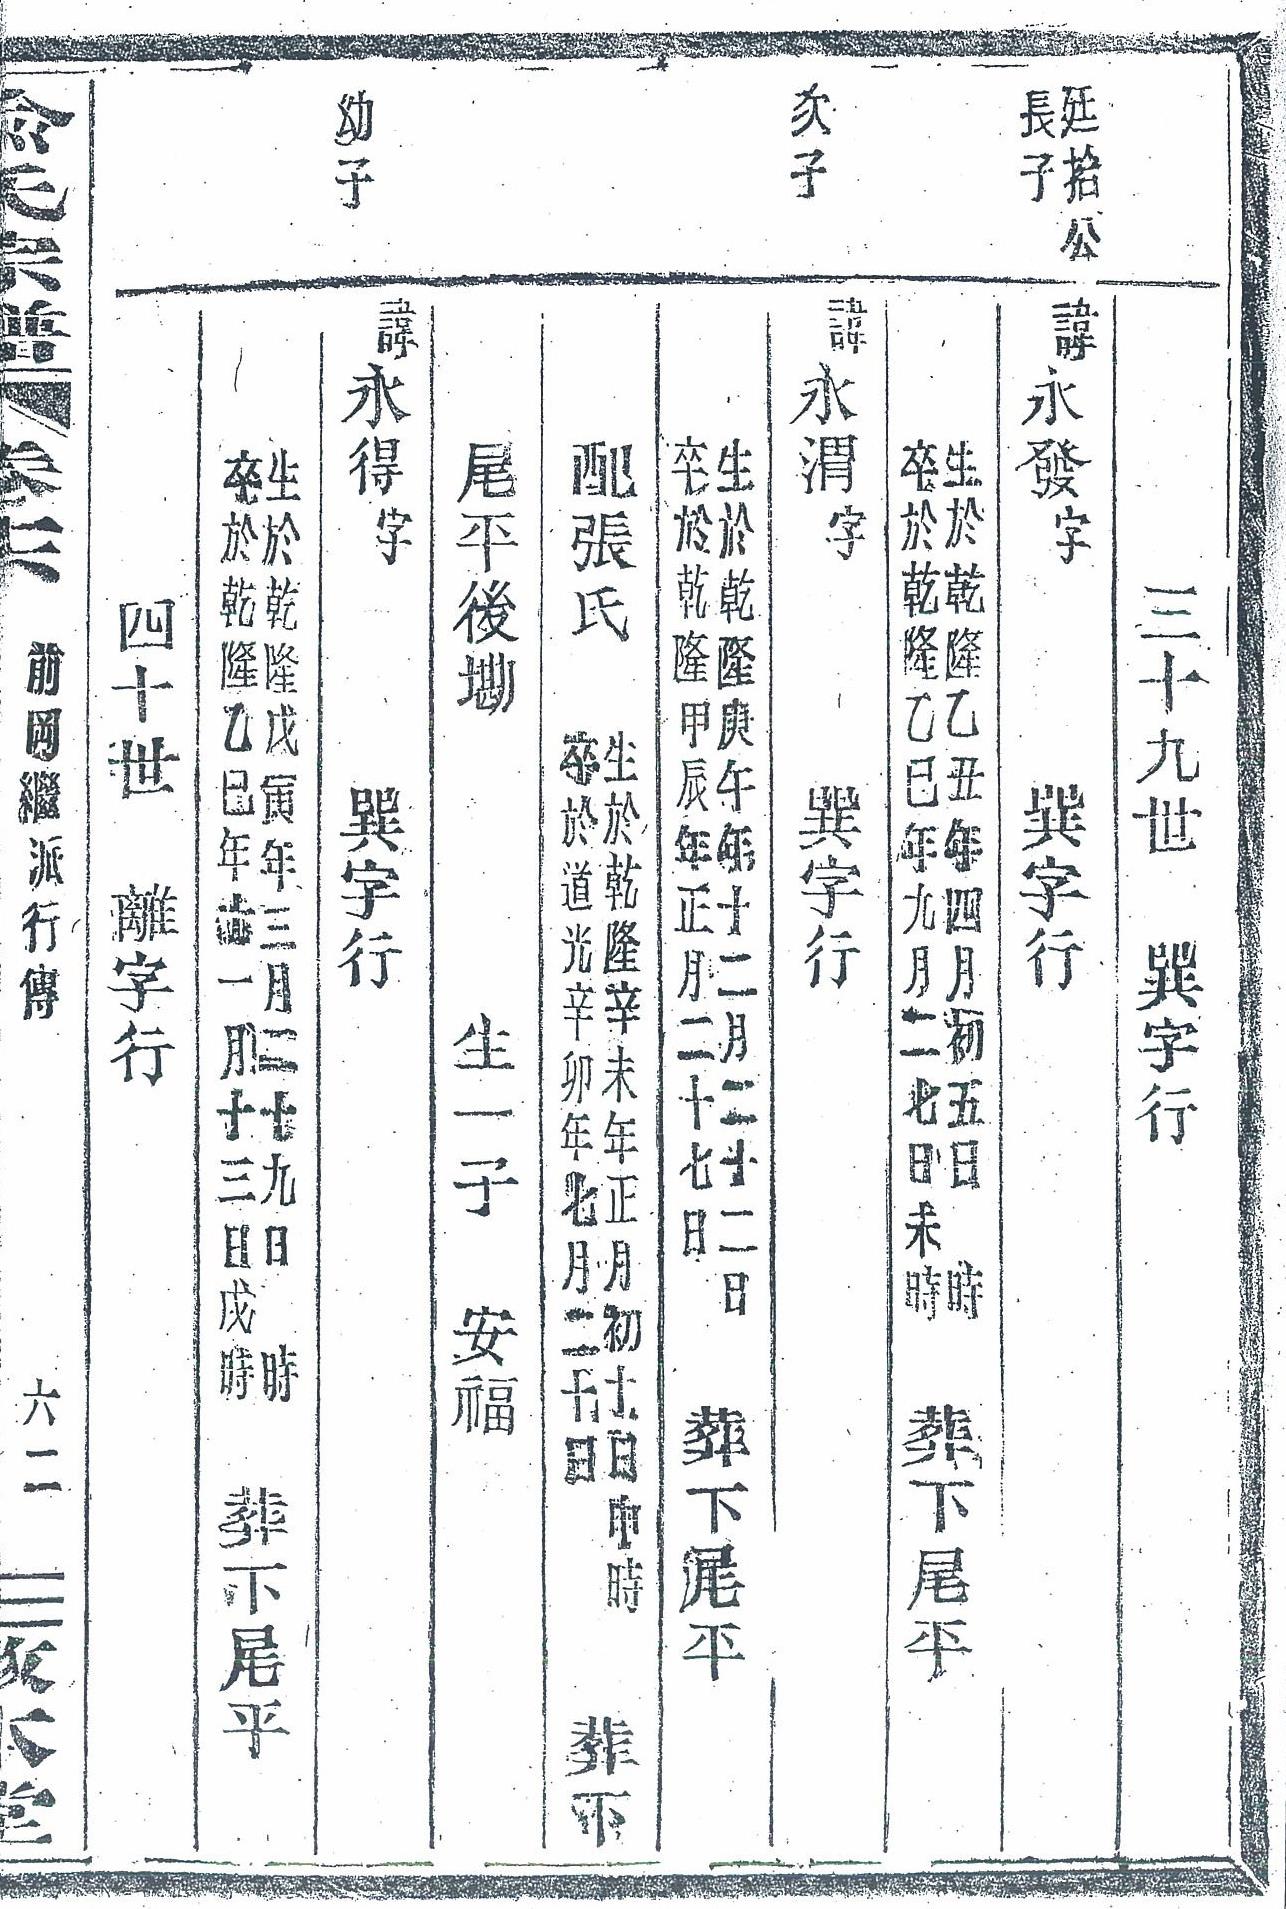 三十九世　巽字行
廷拾公
長子
諱永發字　巽字行
生於乾隆乙丑年四月初五日　時
卒於乾隆乙巳年九月二七日未時
葬下尾平
次子
諱永渭字　巽字行
生於乾隆庚午年十二月二十二日
卒於乾隆甲辰年正月二十七日
葬下尾平
配張氏
生於乾隆辛未年正月初十日申時
卒於道光辛卯年七月二十日
葬下
尾平後塝　生一子　安福
幼子
諱永得字　巽字行
生於乾隆戊寅年三月二十九日　時
卒於乾隆乙巳年十一月十三日戌時
葬下尾平
四十世　離字行
氏宗譜
前岡繼派行傳
六二
本堂